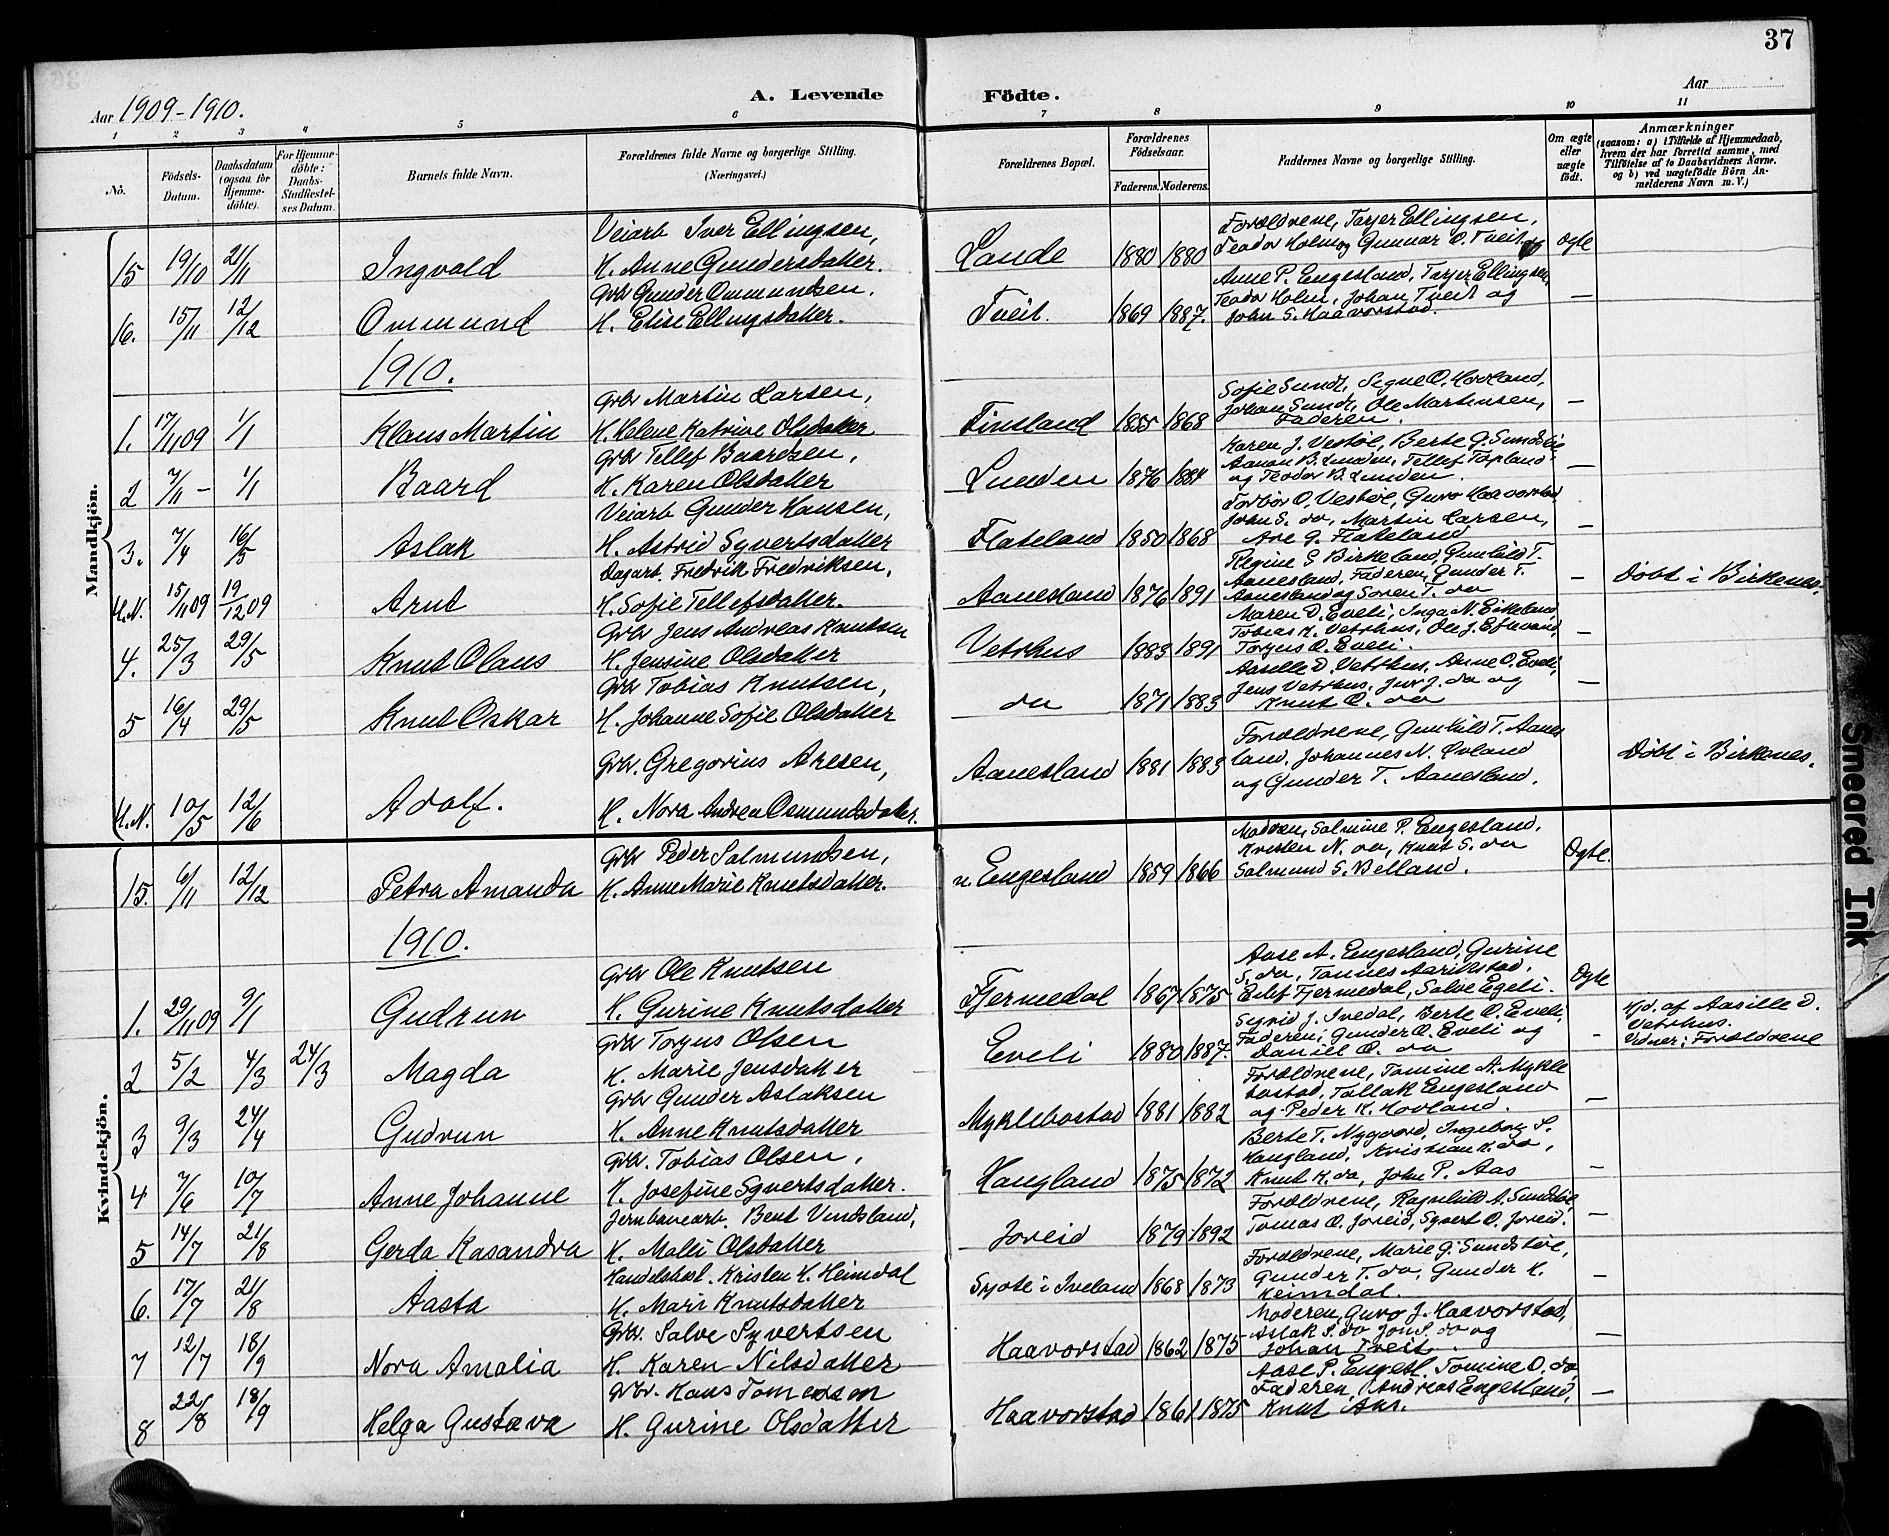 37
Aar 1909-1910.
A. Levende Födte.
Aar
1 2 3 4 5 6 7 8 9 10 11
No.
Födsels-Datum.
Daabsdatum (ogsaa for Hjemme-döbte).
For Hjemme-döbte: Daabs-Stadfestel-ses Datum.
Barnets fulde Navn.
Forældrenes fulde Navne og borgerlige Stilling.
(Næringsvei.)
Forældrenes Bopæl.
Forældrenes Födselsaar.
Faderens. Moderens.
Faddernes Navne og borgerlige Stilling.
Om ægte eller uægte födt.
Anmærkninger
(saasom: a) i Tilfælde af Hjemmedaab, hvem der har forrettet samme, med Tilföielse af to Daabsvidners Navne. og b) ved uægtefödte Börn An-melderens Navn m. V.)
Mandkjön.
15 19/10 21/11 Ingvald Veiarb Iver Ellingsen,
H. Anne Gundersdatter. Lande 1880 1880 Forældrene, Tarjer Ellingsen,
Teodor Holm og Gunnar O. Tveit Ægte
16. 15/11 12/12 Ommund Grbr Gunder Ommundsen,
H. Elise Ellingsdatter. Tveit. 1869 1887. Anne P. Engesland, Tarjer Ellingsen,
Teodor Holm, Johan Tveit og
John S. Haavorstad. —
1910.
1. 17/11 09 1/1 Klaus Martin Grbr Martin Larsen,
H. Helene Katrine Olsdatter Finsland 1855 1868 Sofie Sundt, Signe O. Hovland,
Johan Sundt, Ole Martinsen,
Faderen. —
2 7/11 - 1/1 Baard Grbr Tellef Baardsen,
H. Karen Olsdatter Lunden 1876 1884 Karen J. Vestøl, Berte G. Sundslie
Aanon B. Lunden, Tellef Topland
og Teodor B. Lunden. —
3. 7/4 16/5 Aslak Veiarb Gunder Hansen,
H. Astrid Syvertsdatter Flateland 1850 1868 Torbor O. Vestøl, Guro Haavorstad
John S. do, Martin Larsen,
Are G. Flateland —
U.N. 15/11 09 19/12 09 Arnt Dagarb. Fredrik Fredriksen,
H. Sofie Tellefsdatter. Aanesland 1876 1891 Regine S Birkeland, Gunhild T.
Aanesland, Faderen, Gunder T.
Aanesland og Soren T. do — Döbt i Birkenes.
4. 25/3 29/5 Knut Olaus Grbr Jens Andreas Knutsen
H. Jensine Olsdatter Vetrhus 1883 1891 Maren D. Eveli, Inga N. Eikeland
Tobias K. Vetrhus, Ole J.
Torgus O. Eveli. —
5 16/4 29/5 Knut Oskar Grbr Tobias Knutsen,
H. Johanne Sofie Olsdatter do 1871 1883 Aasille D. Vetrhus, Anne O. Eveli,
Jens Vetrhus, J. do og
Knut O. do —
U.N. 10/5 12/6 Adolf. Grbr. Gregorius Aresen,
H. Nora Andrea Osmundsdatter. Aanesland 1881 1883 Forældrene, Gunhild T. Aanes
land, Johannes N. Øvland
og Gunder T. Aanesland. Döbt i Birkenes.
Kvindekjön.
15. 6/11 12/12 Petra Amanda Grbr Peder Salmundsen,
H. Anne Marie Knutsdatter. n. Engesland 1859 1866 Modren, Salmine P. Engesland,
Kristen N. do, Knut S. do
Salmund S. Belland. Ægte.
1910.
1. 29/11 09 9/1 Gudrun Grbr Ole Knutsen
H. Gurine Knutsdatter Fjermedal 1867 1875 Aase A. Engesland, Gurine
S. do, Tønnes Aarikstad,
Eilef Fjermedal, Salve Egeli. Ægte
2 5/2 4/3 24/3 Magda Grbr Torgus Olsen
H. Marie Jensdatter Eveli 1880 1887. Sigrid J. Ivedal, Berte O. Eveli,
Faderen, Gunder O. Eveli og
Daniel O. do - Hjd. af Aasille D.
Vetrhus.
Vidner: Forældrene
3 9/3 24/4 Gudrun Grbr Gunder Aslaksen
H. Anne Knutsdatter Myklebostad 1881 1882 Forældrene, Tomine A. Mykle
bostad, Tallak Engesland
og Peder K. Hovland. —
4 7/6 10/7 Anne Johanne Grbr. Tobias Olsen,
H. Josefine Syvertsdatter. Haugland 1875 1872 Berte T. Nygaard, Ingeborg S.
Haugland, Kristian K. do,
Knut K. do, John P. Aas —
5 14/7 21/8 Gerda Kasandra Jernbanearb. Bent Vindsland,
H. Malli Olsdatter Joreid 1879 1892 Forældrene, Ragnhild A. Sundslie,
Tomas O. Joreid, Syvert O. Joreid. —
6. 17/7 21/8 Aasta Handelsbest. Kristen K. Heimdal
H. Mari Knutsdatter i Iveland 1868 1873 Forældrene, Marie G. Sundslie,
Gunder T. do, Gunder K.
Heimdal. —
7 12/7 18/9 Nora Amalia Grbr. Salve Syvertsen
H. Karen Nilsdatter Haavorstad 1862 1875 Moderen, Guro J. Haavorstad,
Aslak S. do Jon S. do og
Johan Tveit. —
8 22/8 18/9 Helga Gustava Grbr. Hans Tomessen
H. Gurine Olsdatter Haavorstad 1861 1875 Aase P. Engesl. Tomine O. do,
Faderen, Andreas Engesland,
Knut Aas. —
Smeared Ink